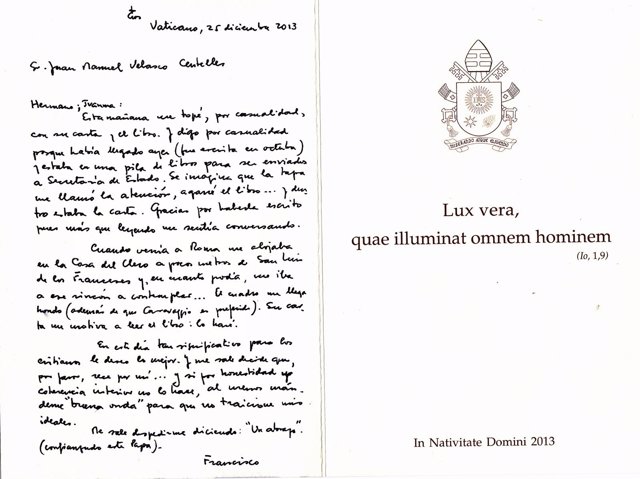 Vaticano, 25 diciembre 2013
Sr. Juan Manuel Velasco Centelles
Hermano, Juanma:
Esta mañana me topé, por casualidad,
con su carta y el libro. Y digo por casualidad
porque había llegado ayer (fue escrita en octubre)
y estaba en una pila de libros para ser enviados
a Secretaría de Estado. Se imagina que la tapa
me llamó la atención, agarré el libro... y den-
tro estaba la carta. Gracias por haberla escrito
pues más que leyendo me sentía conversando.
Cuando venía a Roma me alojaba
en la Casa del Clero a pocos metros de San Luis
de los Franceses y, en cuanto podía, me iba
a ese rincón a contemplar... El cuadro me llega
hondo (además de que Caravaggio es preferido). Su car-
ta me motiva a leer el libro: lo haré.
En este día tan significativo para los
cristianos le deseo lo mejor. Y me sale decirle que,
por favor, rece por mí... y si por honestidad y
coherencia interior no lo hace, al menos mán-
deme "buena onda" para que no traicione mis
ideales.
Me sale despedirme diciendo: "Un abrazo".
(confianzudo este Papa).
Francisco
MISERANDO ATQUE ELIGENDO
Lux vera,
quae illuminat omnem hominem
(Io, 1,9)
In Nativitate Domini 2013